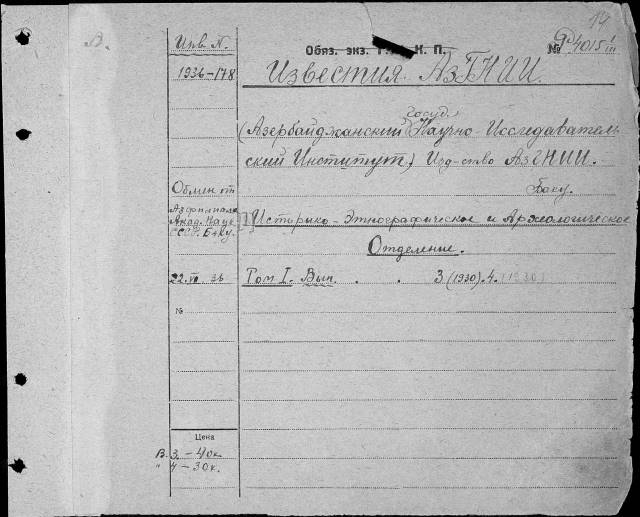 14
В.
Инв. N.
Обяз. экз. К. П.
№ 4015 I/III
1936-178
Известия АзГНИИ.
госуд.
(Азербайджанский Научно-Исследователь
ский Институт) Изд-ство АзГНИИ.
Баку.
Обмен от
Азфилиала
Акад. Наук
СССР. Баку.
[7] Историко-Этнографическое и Археологическое
Отделение.
22.VI.36 Том I. Вып. . . 3 (1930). 4. (1930)
№
Цена
В. 3. - 40к.
" 4 - 30к.